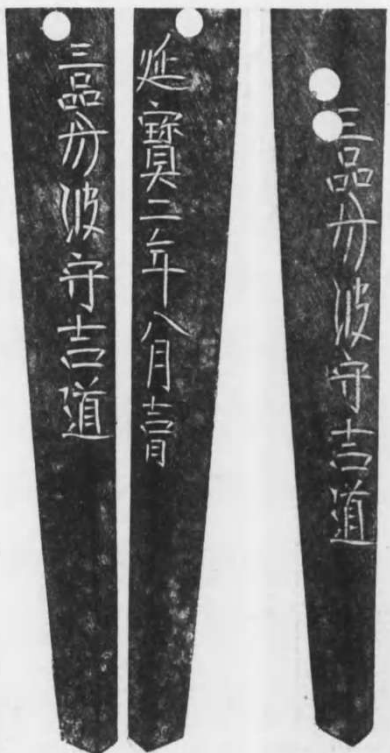 三品丹波守吉道
延寶二年八月吉日
三品丹波守吉道